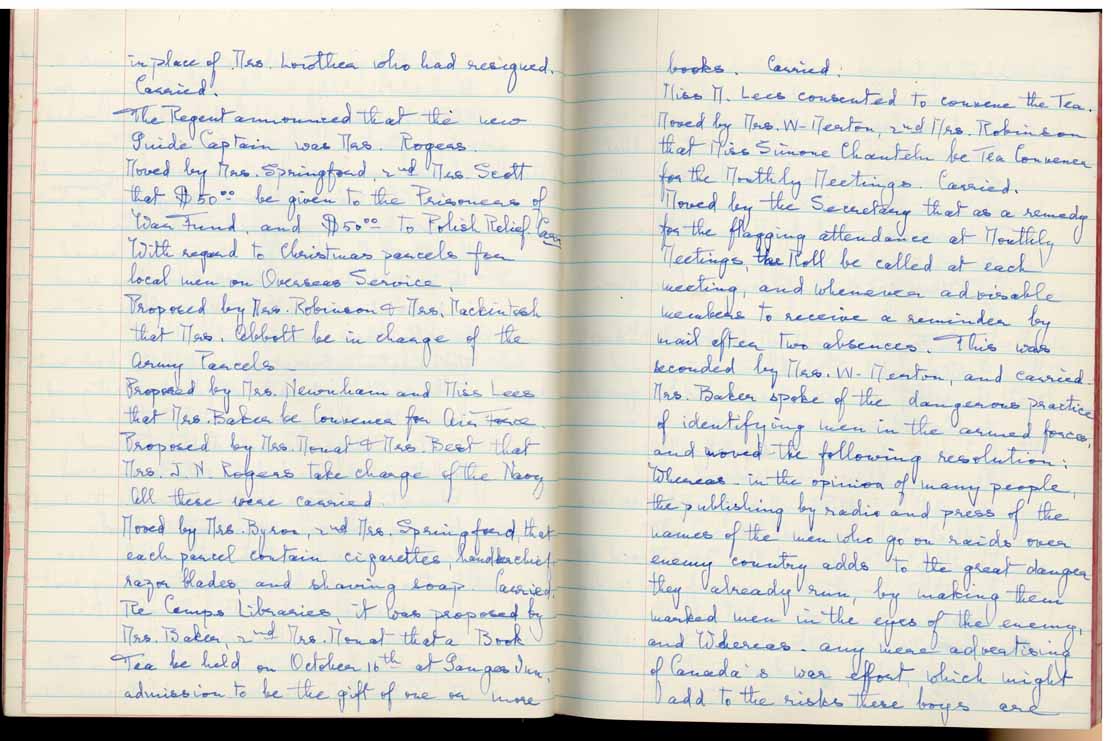 in place of Mrs. Lowther who had resigned.
Carried.
The Regent announced that the new
Guide Captain was Mrs. Rogers.
Moved by Mrs. Springford, 2nd Mrs. Scott
that $50.00 be given to the Prisoners of
War Fund, and $50.00 to Polish Relief.
With regard to Christmas parcels for
local men on Overseas Service,
Proposed by Mrs. Robinson & Mrs. Mackintosh
that Mrs. Abbott be in charge of the
Army Parcels.
Proposed by Mrs. Newnham and Miss Lees
that Mrs. Baker be Convener for Air Force.
Proposed by Mrs. Mouat & Mrs. Best that
Mrs. J. N. Rogers take charge of the Navy
All these were carried.
Moved by Mrs. Byron, 2nd Mrs. Springford, that
each parcel contain cigarettes, handkerchief
razor blades, and shaving soap. Carried.
Re Camps Libraries, it was proposed by
Mrs. Baker, 2nd Mrs. Mouat that a Book
Tea be held on October 16th at Ganges Inn,
admission to be the gift of one or more
books. Carried.
Miss M. Lees consented to convene the Tea.
Moved by Mrs. W- Merton, 2nd Mrs. Robinson
that Miss Simone Chantelu be Tea Convener
for the Monthly Meetings. Carried.
Moved by the Secretary that as a remedy
for the flagging attendance at Monthly
Meetings, the Roll be called at each
meeting, and whenever advisable
members to receive a reminder by
mail after two absences. This was
seconded by Mrs. W- Merton, and carried.
Mrs. Baker spoke of the dangerous practice
of identifying men in the armed forces,
and moved the following resolution:
Whereas - in the opinion of many people,
the publishing by radio and press of the
names of the men who go on raids over
enemy country adds to the great danger
they already run, by making them
marked men in the eyes of the enemy,
and Whereas - any mere advertising
of Canada's war effort which might
add to the risks these boys are